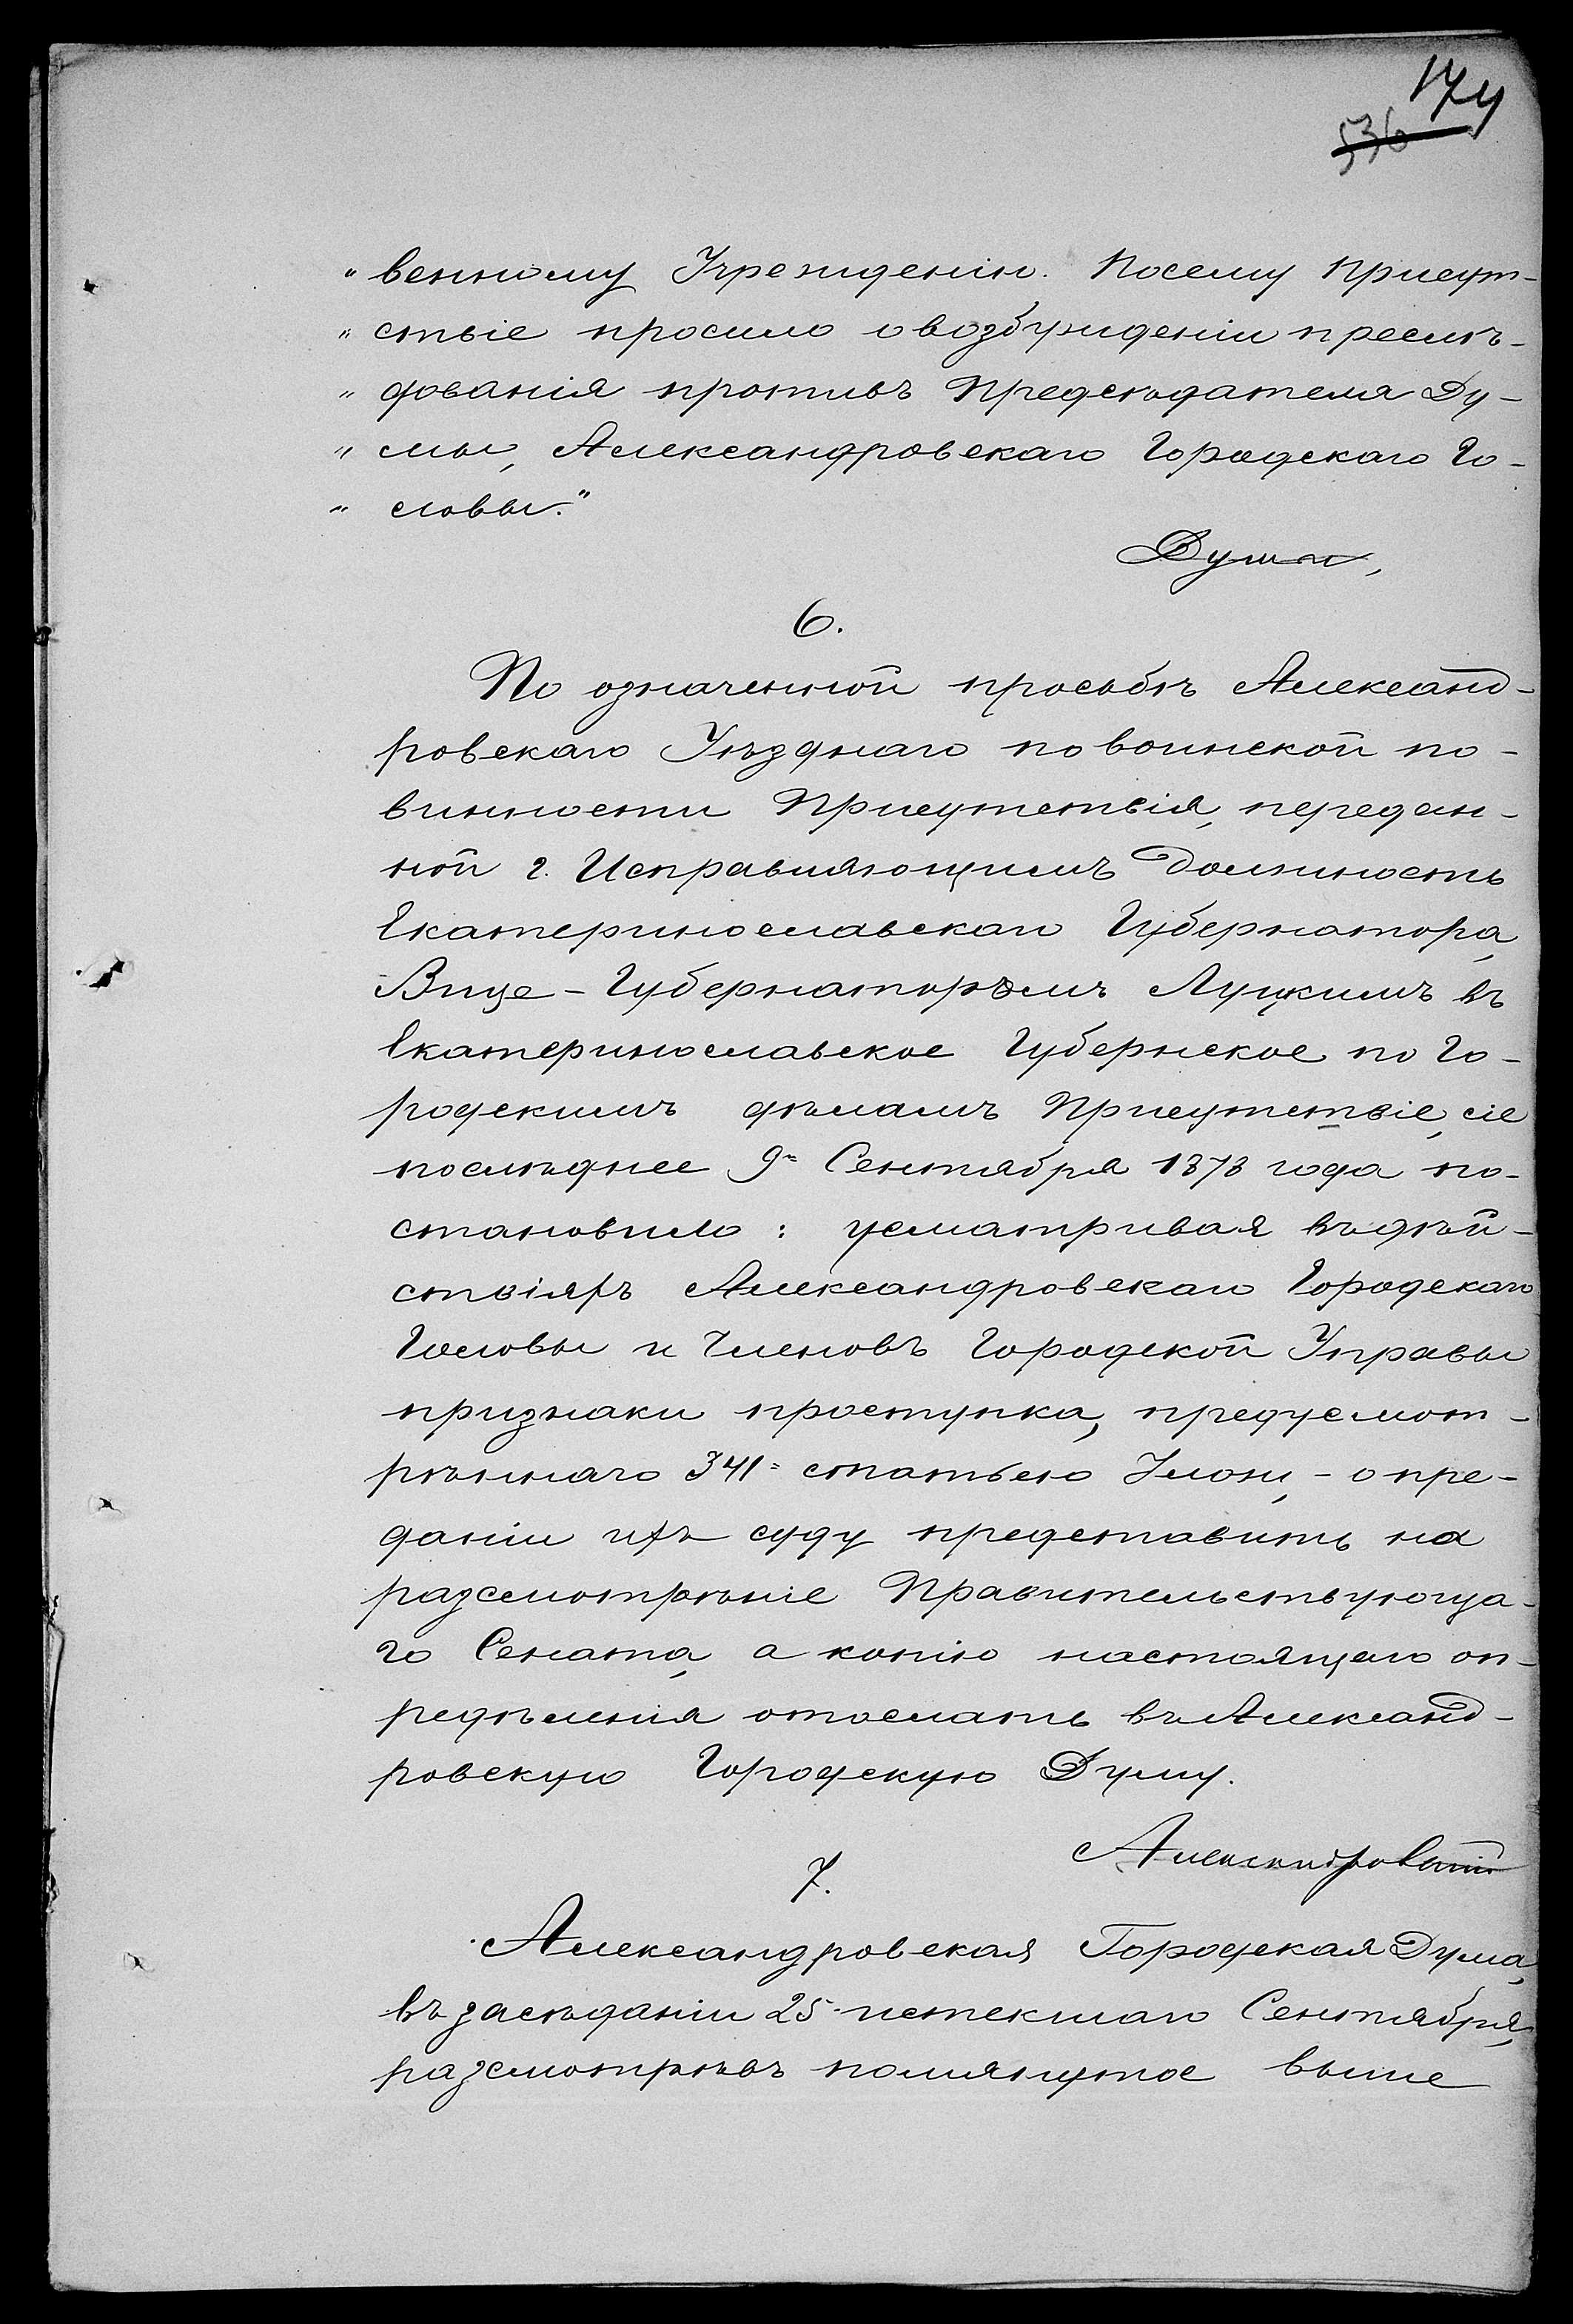 174
536
„ венному Учрежденію. Посему Присут-
„ ствіе просило о возбужденіи преслѣ-
„ дованія противъ Предсѣдателя Ду-
„ мы, Александровскаго Городскаго Го-
„ ловы."
Думы,
6.
По означенной просьбѣ Александ-
ровскаго Уѣзднаго по воинской по-
винности Присутствія, передан-
ной г. Исправляющимъ Должность
Екатеринославскаго Губернатора,
Вице-Губернаторомъ Луцкимъ въ
Екатеринославское Губернское по Го-
родскимъ дѣламъ Присутствіе, сіе
послѣднее 9го Сентября 1878 года по-
становило: усматривая въ дѣй-
ствіяхъ Александровскаго Городскаго
Головы и Членовъ Городской Управы
признаки проступка, предусмот-
рѣннаго 341ю статьею Улож., - о пре-
даніи ихъ суду представить на
разсмотрѣніе Правительствующа-
го Сената, а копію настоящаго оп-
редѣленія отослать въ Александ-
ровскую Городскую Думу.
7.
Александровская Городская Дума,
въ засѣданіи 25 истекшаго Сентября,
разсмотрѣвъ помянутое выше